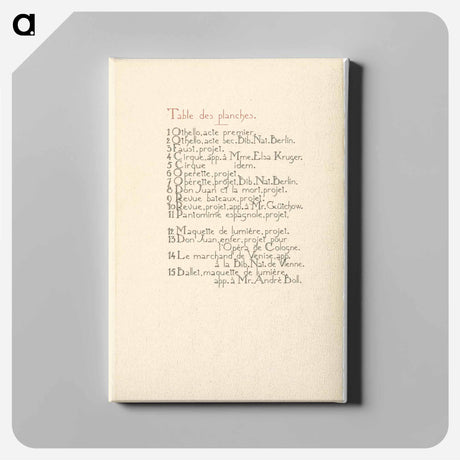 a
Table des planches.
1 Othello, acte premier.
2 Othello, acte sec. Bib. Nat. Berlin.
3 Faust, projet.
4 Cirque, app. à Mme. Elsa Kruger.
5 Cirque idem.
6 Operette, projet
7 Opérette, projet, Bib. Nat. Berlin.
8 Don Juan et la mort, projet.
9 Revue bateaux, projet.
10 Revue, projet, app. à Mr. Gütchow.
11 Pantomime espagnole, projet,
12 Maquette de lumière, projet.
13 Don Juan, enfer, projet pour
l'Opéra de Cologne.
14 Le marchand de Venise, app.
à la Bib. Nat. de Vienne.
15 Ballet, maquette de lumière,
app. à Mr. André Boll.